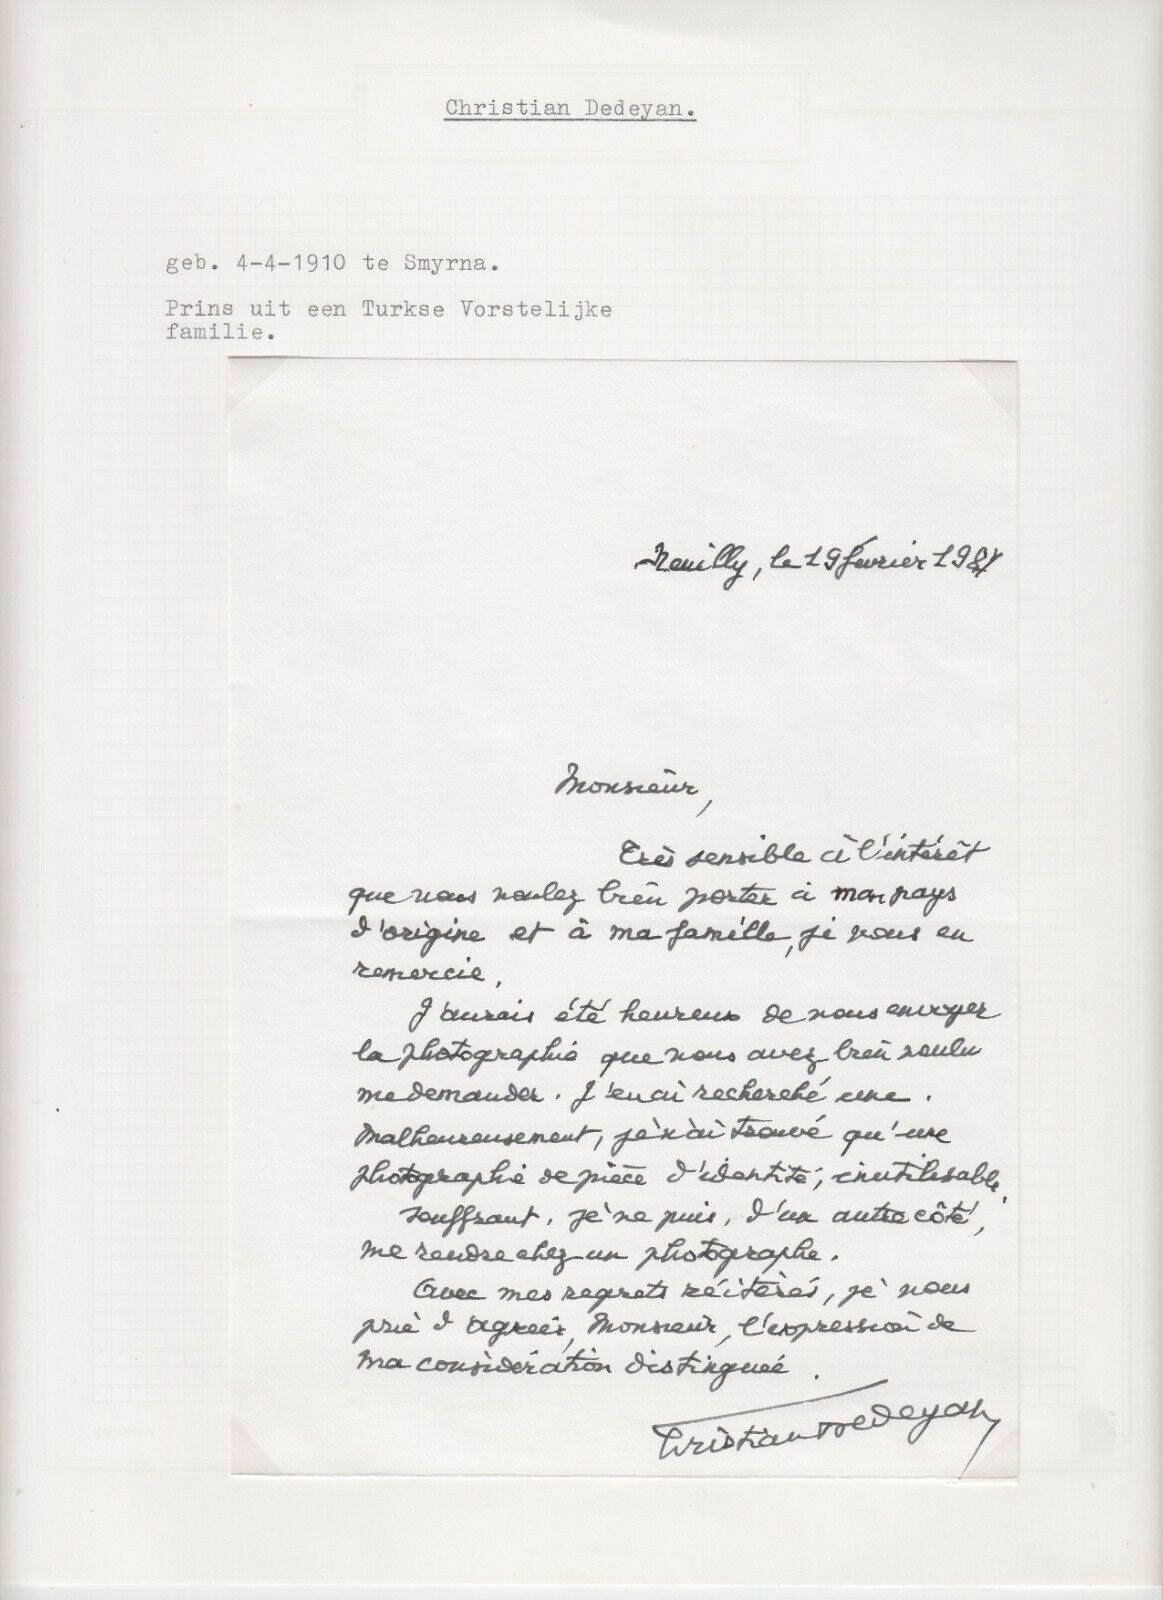 Christian Dedeyan.
geb. 4-4-1910 te Smyrna.
Prins uit een Turkse Vorstelijke
familie.
Neuilly, le 19 février
Monsieur,
Très sensible à l'intérêt
que vous voulez bien porter à mon pays
d'origine et à ma famille, je vous en
remercie.
J'aurais été heureux de vous envoyer
la photographie que vous avez bien voulu
me demander. J'en ai recherché une.
Malheureusement, je n'ai trouvé qu'une
photographie de pièce d'identité, inutilisable.
Souffrant, je ne puis, d'un autre côté,
me rendre chez un photographe.
Avec mes regrets réitérés, je vous
prie d'agréer, Monsieur, l'expression de
ma considération distinguée.
Christian Dedeyan